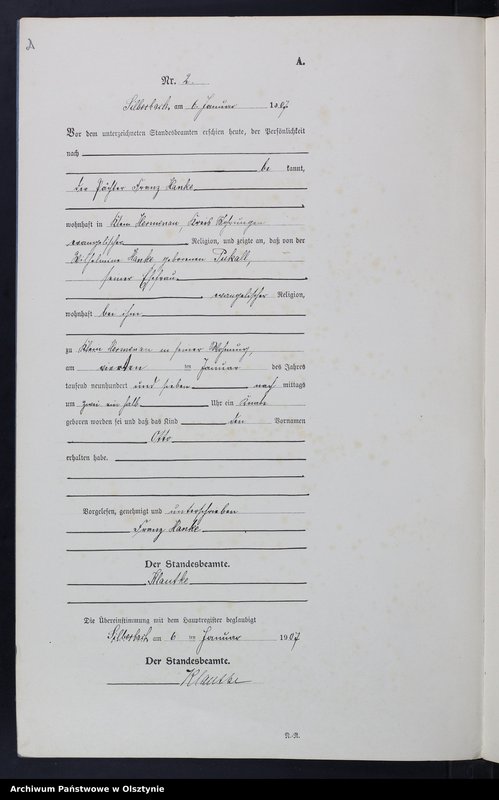 A.
Nr. 2.
Silberbach, am 6. Januar 1907
Vor dem unterzeichneten Standesbeamten erschien heute, der Persönlichkeit
nach
be kannt,
der Pächter Franz Hanke
wohnhaft in Klein Hermenau, Kreis Mohrungen
evangelischer Religion, und zeigte an, daß von der
Wilhelmine Hanke geborenen Pukall,
seiner Ehefrau
evangelischer Religion,
wohnhaft bei ihm
zu Klein Hermenau in seiner Wohnung,
am vierten ten Januar des Jahres
tausend neunhundert und sieben nach mittags
um zwei ein halb Uhr ein Knabe
geboren worden sei und daß das Kind den Vornamen
Otto
erhalten habe.
Vorgelesen, genehmigt und unterschrieben
Franz Hanke
Der Standesbeamte.
Klautke
Die Übereinstimmung mit dem Hauptregister beglaubigt
Silberbach am 6 ten Januar 1907
Der Standesbeamte.
Klautke
N.-R.
Archiwum Państwowe w Olsztynie